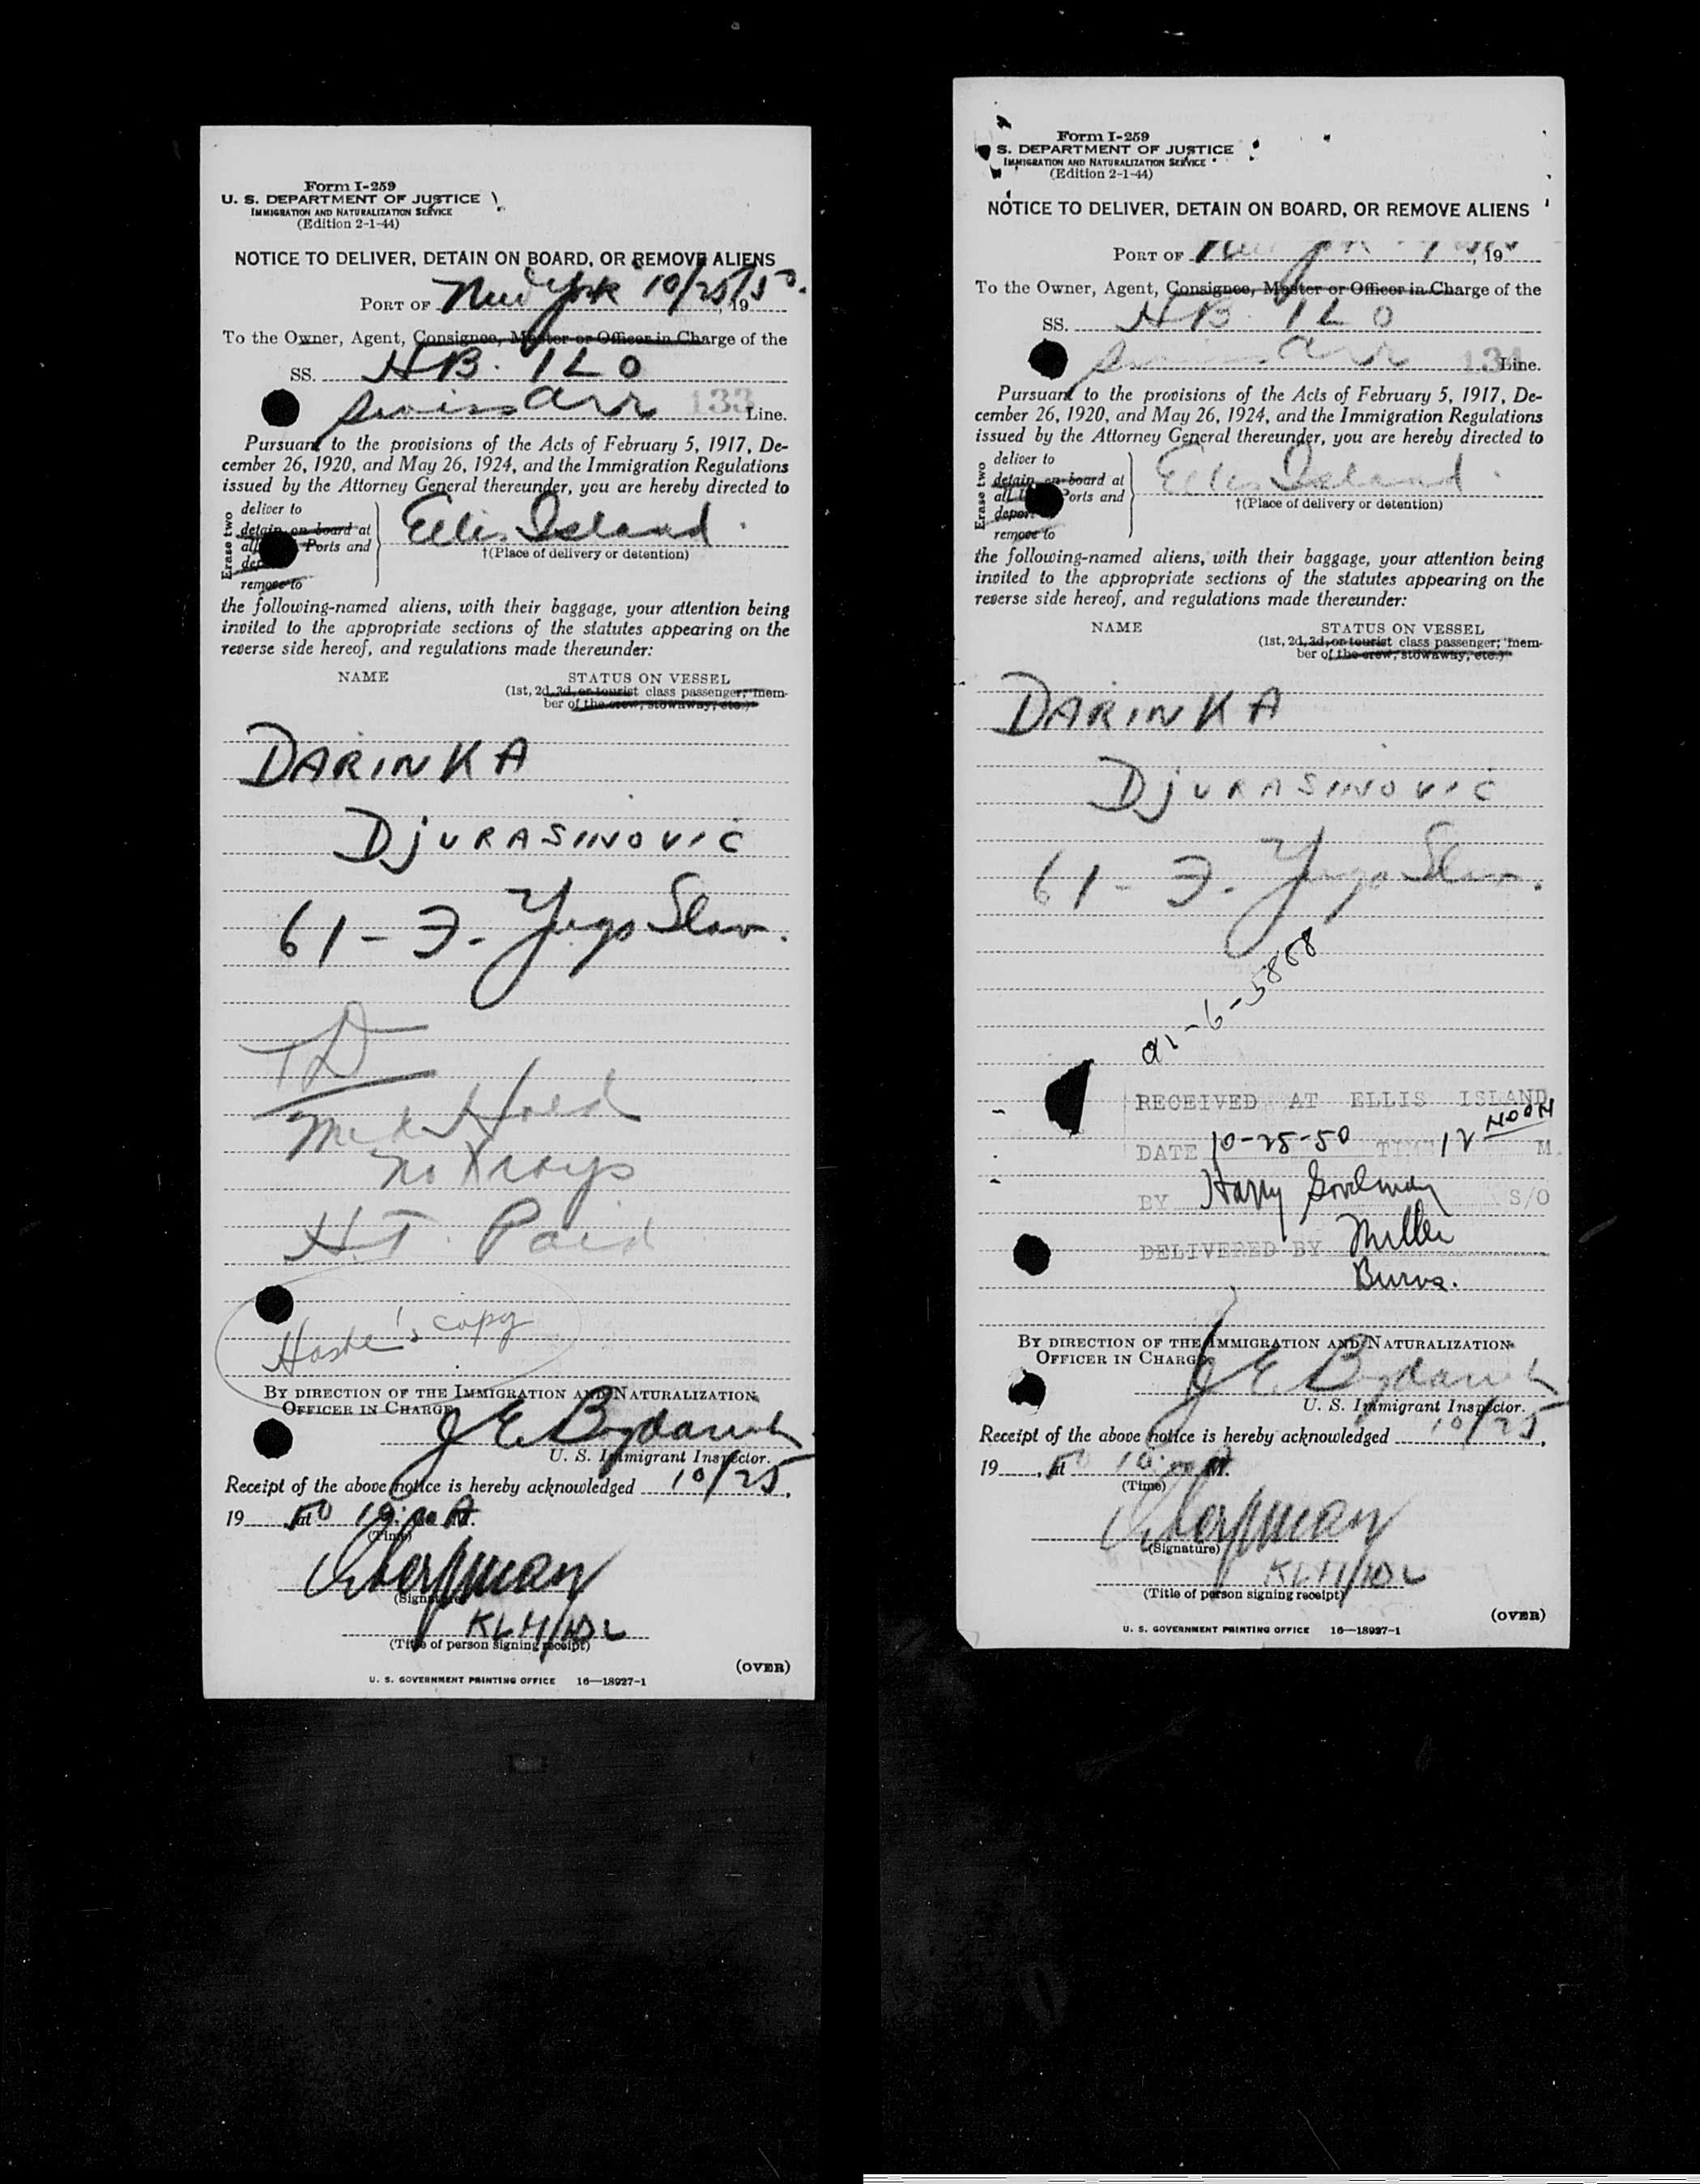 Form I-259
U. S. DEPARTMENT OF JUSTICE
IMMIGRATION AND NATURALIZATION SERVICE
(Edition 2-1-44)
NOTICE TO DELIVER, DETAIN ON BOARD, OR REMOVE ALIENS
PORT OF New York 10/25/50, 19
To the Owner, Agent, Consignee, Master or Officer in Charge of the
SS. HB. ILO
Swiss Air 133 Line.
Pursuant to the provisions of the Acts of February 5, 1917, De-
cember 26, 1920, and May 26, 1924, and the Immigration Regulations
issued by the Attorney General thereunder, you are hereby directed to
Erase two
deliver to
detain on board at
all Ports and
remove to
Ellis Island.
†(Place of delivery or detention)
the following-named aliens, with their baggage, your attention being
invited to the appropriate sections of the statutes appearing on the
reverse side hereof, and regulations made thereunder:
NAME STATUS ON VESSEL
(1st, 2d, 3d, or tourist class passenger; mem-
ber of the crew, stowaway, etc.)
DARINKA
DJURASINOVIC
61 - F. Yugo Slav.
TD
Med Hold
No Xrays
H.T. Paid
copy
BY DIRECTION OF THE IMMIGRATION AND NATURALIZATION
OFFICER IN CHARGE
J E
U. S. Immigrant Inspector.
Receipt of the above notice is hereby acknowledged 10/25,
19 50 at M.
(Time)
(Signature)
(Title of person signing receipt)
(OVER)
U. S. GOVERNMENT PRINTING OFFICE 16—18927-1
Form I-259
S. DEPARTMENT OF JUSTICE
IMMIGRATION AND NATURALIZATION SERVICE
(Edition 2-1-44)
NOTICE TO DELIVER, DETAIN ON BOARD, OR REMOVE ALIENS
PORT OF New York , 19
To the Owner, Agent, Consignee, Master or Officer in Charge of the
SS. HB. ILO
Swiss Air 134 Line.
Pursuant to the provisions of the Acts of February 5, 1917, De-
cember 26, 1920, and May 26, 1924, and the Immigration Regulations
issued by the Attorney General thereunder, you are hereby directed to
Erase two
deliver to
detain on board at
all Ports and
remove to
Ellis Island.
†(Place of delivery or detention)
the following-named aliens, with their baggage, your attention being
invited to the appropriate sections of the statutes appearing on the
reverse side hereof, and regulations made thereunder:
NAME STATUS ON VESSEL
(1st, 2d, 3d, or tourist class passenger; mem-
ber of the crew, stowaway, etc.)
DARINKA
DJURASINOVIC
61 - F. Yugo Slav.
RECEIVED AT ELLIS ISLAND
DATE 10-25-50 TIME 12 NOON M.
BY Harry Goodman S/O
DELIVERED BY Miller
Burns.
BY DIRECTION OF THE IMMIGRATION AND NATURALIZATION
OFFICER IN CHARGE
J E
U. S. Immigrant Inspector.
Receipt of the above notice is hereby acknowledged 10/25,
19 50 at M.
(Time)
(Signature)
(Title of person signing receipt)
(OVER)
U. S. GOVERNMENT PRINTING OFFICE 16—18927-1